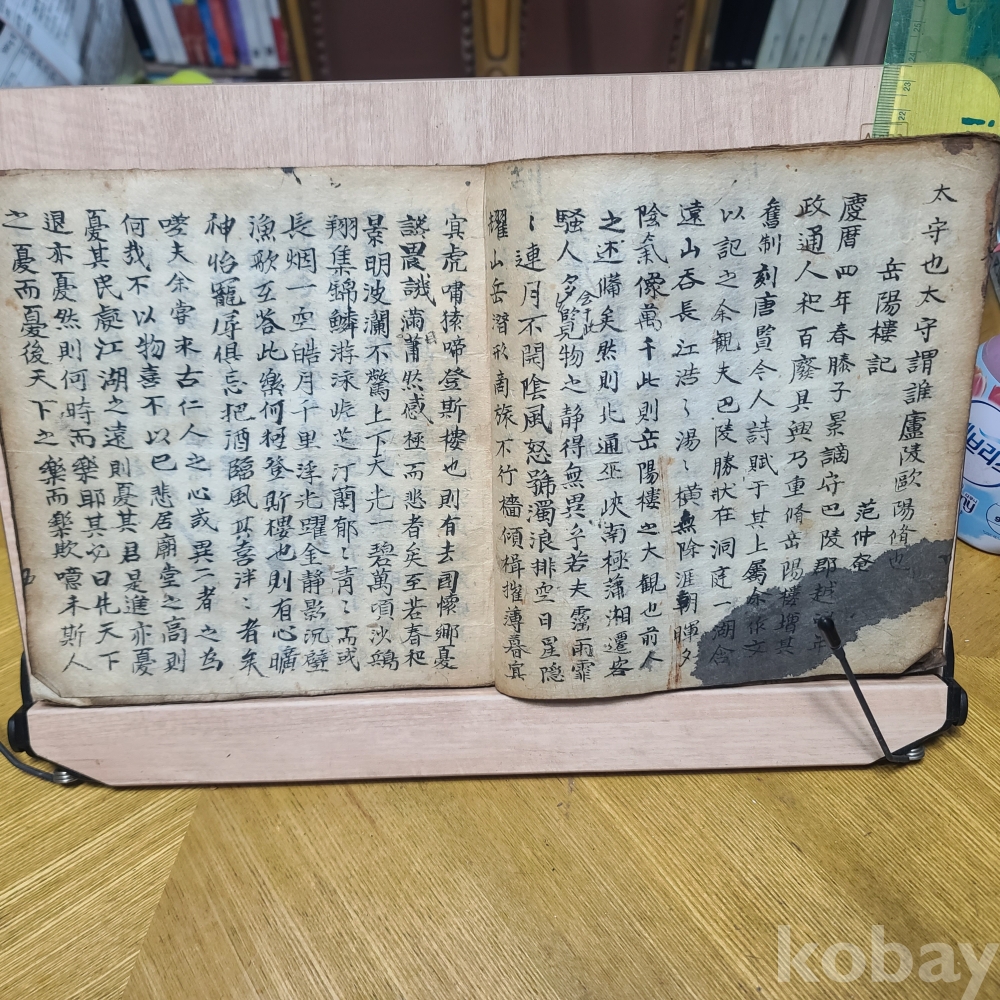 太守也太守謂誰廬陵歐陽脩也
岳陽樓記 范仲奄
慶曆四年春滕子京謫守巴陵郡越年
政通人和百廢具興乃重脩岳陽樓增其
舊制刻唐賢今人詩賦于其上屬余作文
以記之余觀夫巴陵勝狀在洞庭一湖含
遠山吞長江浩〻湯〻橫無除涯朝暉夕
陰氣像萬千此則岳陽樓之大觀也前人
之述備矣然則北通巫峽南極瀟湘遷客
騷人多會于此覽物之静得無異乎若夫霪雨霏
〻連月不開陰風怒號濁浪排空日星隱
耀山岳潛形商旅不行檣傾楫摧薄暮冥
冥虎嘯猿啼登斯樓也則有去國懷鄉憂
讒畏譏滿目蕭然感極而悲者矣至若春和
景明波瀾不驚上下天光一碧萬頃沙鷗
翔集錦鱗游泳岸芷汀蘭郁〻青〻而或
長烟一空皓月千里浮光躍金静影沉璧
漁歌互答此樂何極登斯樓也則有心曠
神怡寵辱俱忘把酒臨風其喜洋〻者矣
嗟夫余嘗求古仁人之心或異二者之為
何哉不以物喜不以己悲居廟堂之高則
憂其民處江湖之遠則憂其君是進亦憂
退亦憂然則何時而樂耶其必曰先天下
之憂而憂後天下之樂而樂歟噫未斯人
kobay